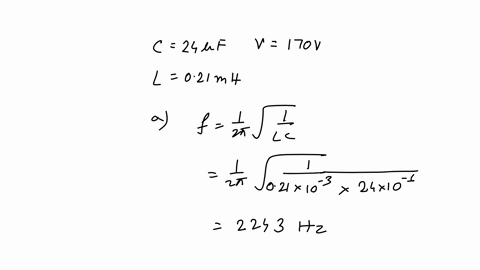 C = 24 uF V = 170V
L = 0.21 mH
a) f = 1/2π √(1/LC)
= 1/2π √(1/(0.21×10⁻³ × 24×10⁻⁶))
= 2243 Hz